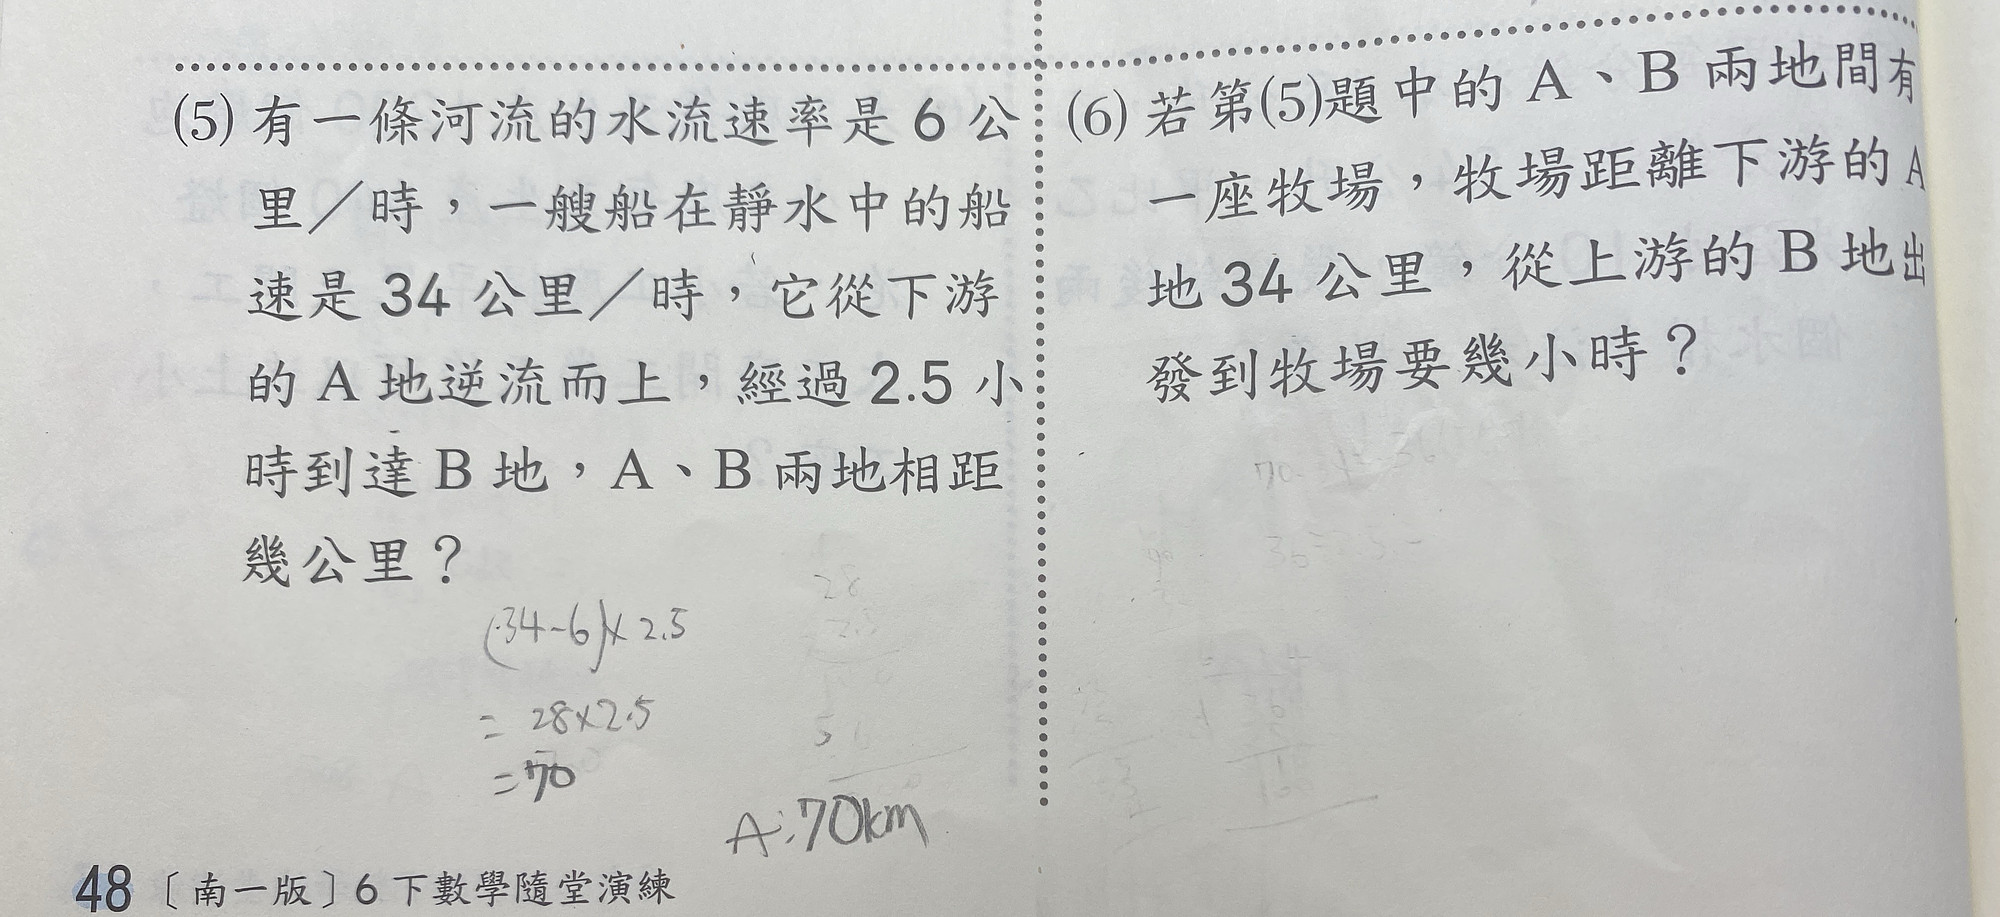 (5) 有一條河流的水流速率是 6 公
里／時，一艘船在靜水中的船
速是 34 公里／時，它從下游
的 A 地逆流而上，經過 2.5 小
時到達 B 地，A、B 兩地相距
幾公里？
(34-6)×2.5
= 28×2.5
= 70
A:70km
28
2.5
(6) 若第(5)題中的 A、B 兩地間有
一座牧場，牧場距離下游的 A
地 34 公里，從上游的 B 地出
發到牧場要幾小時？
48〔南一版〕6 下數學隨堂演練